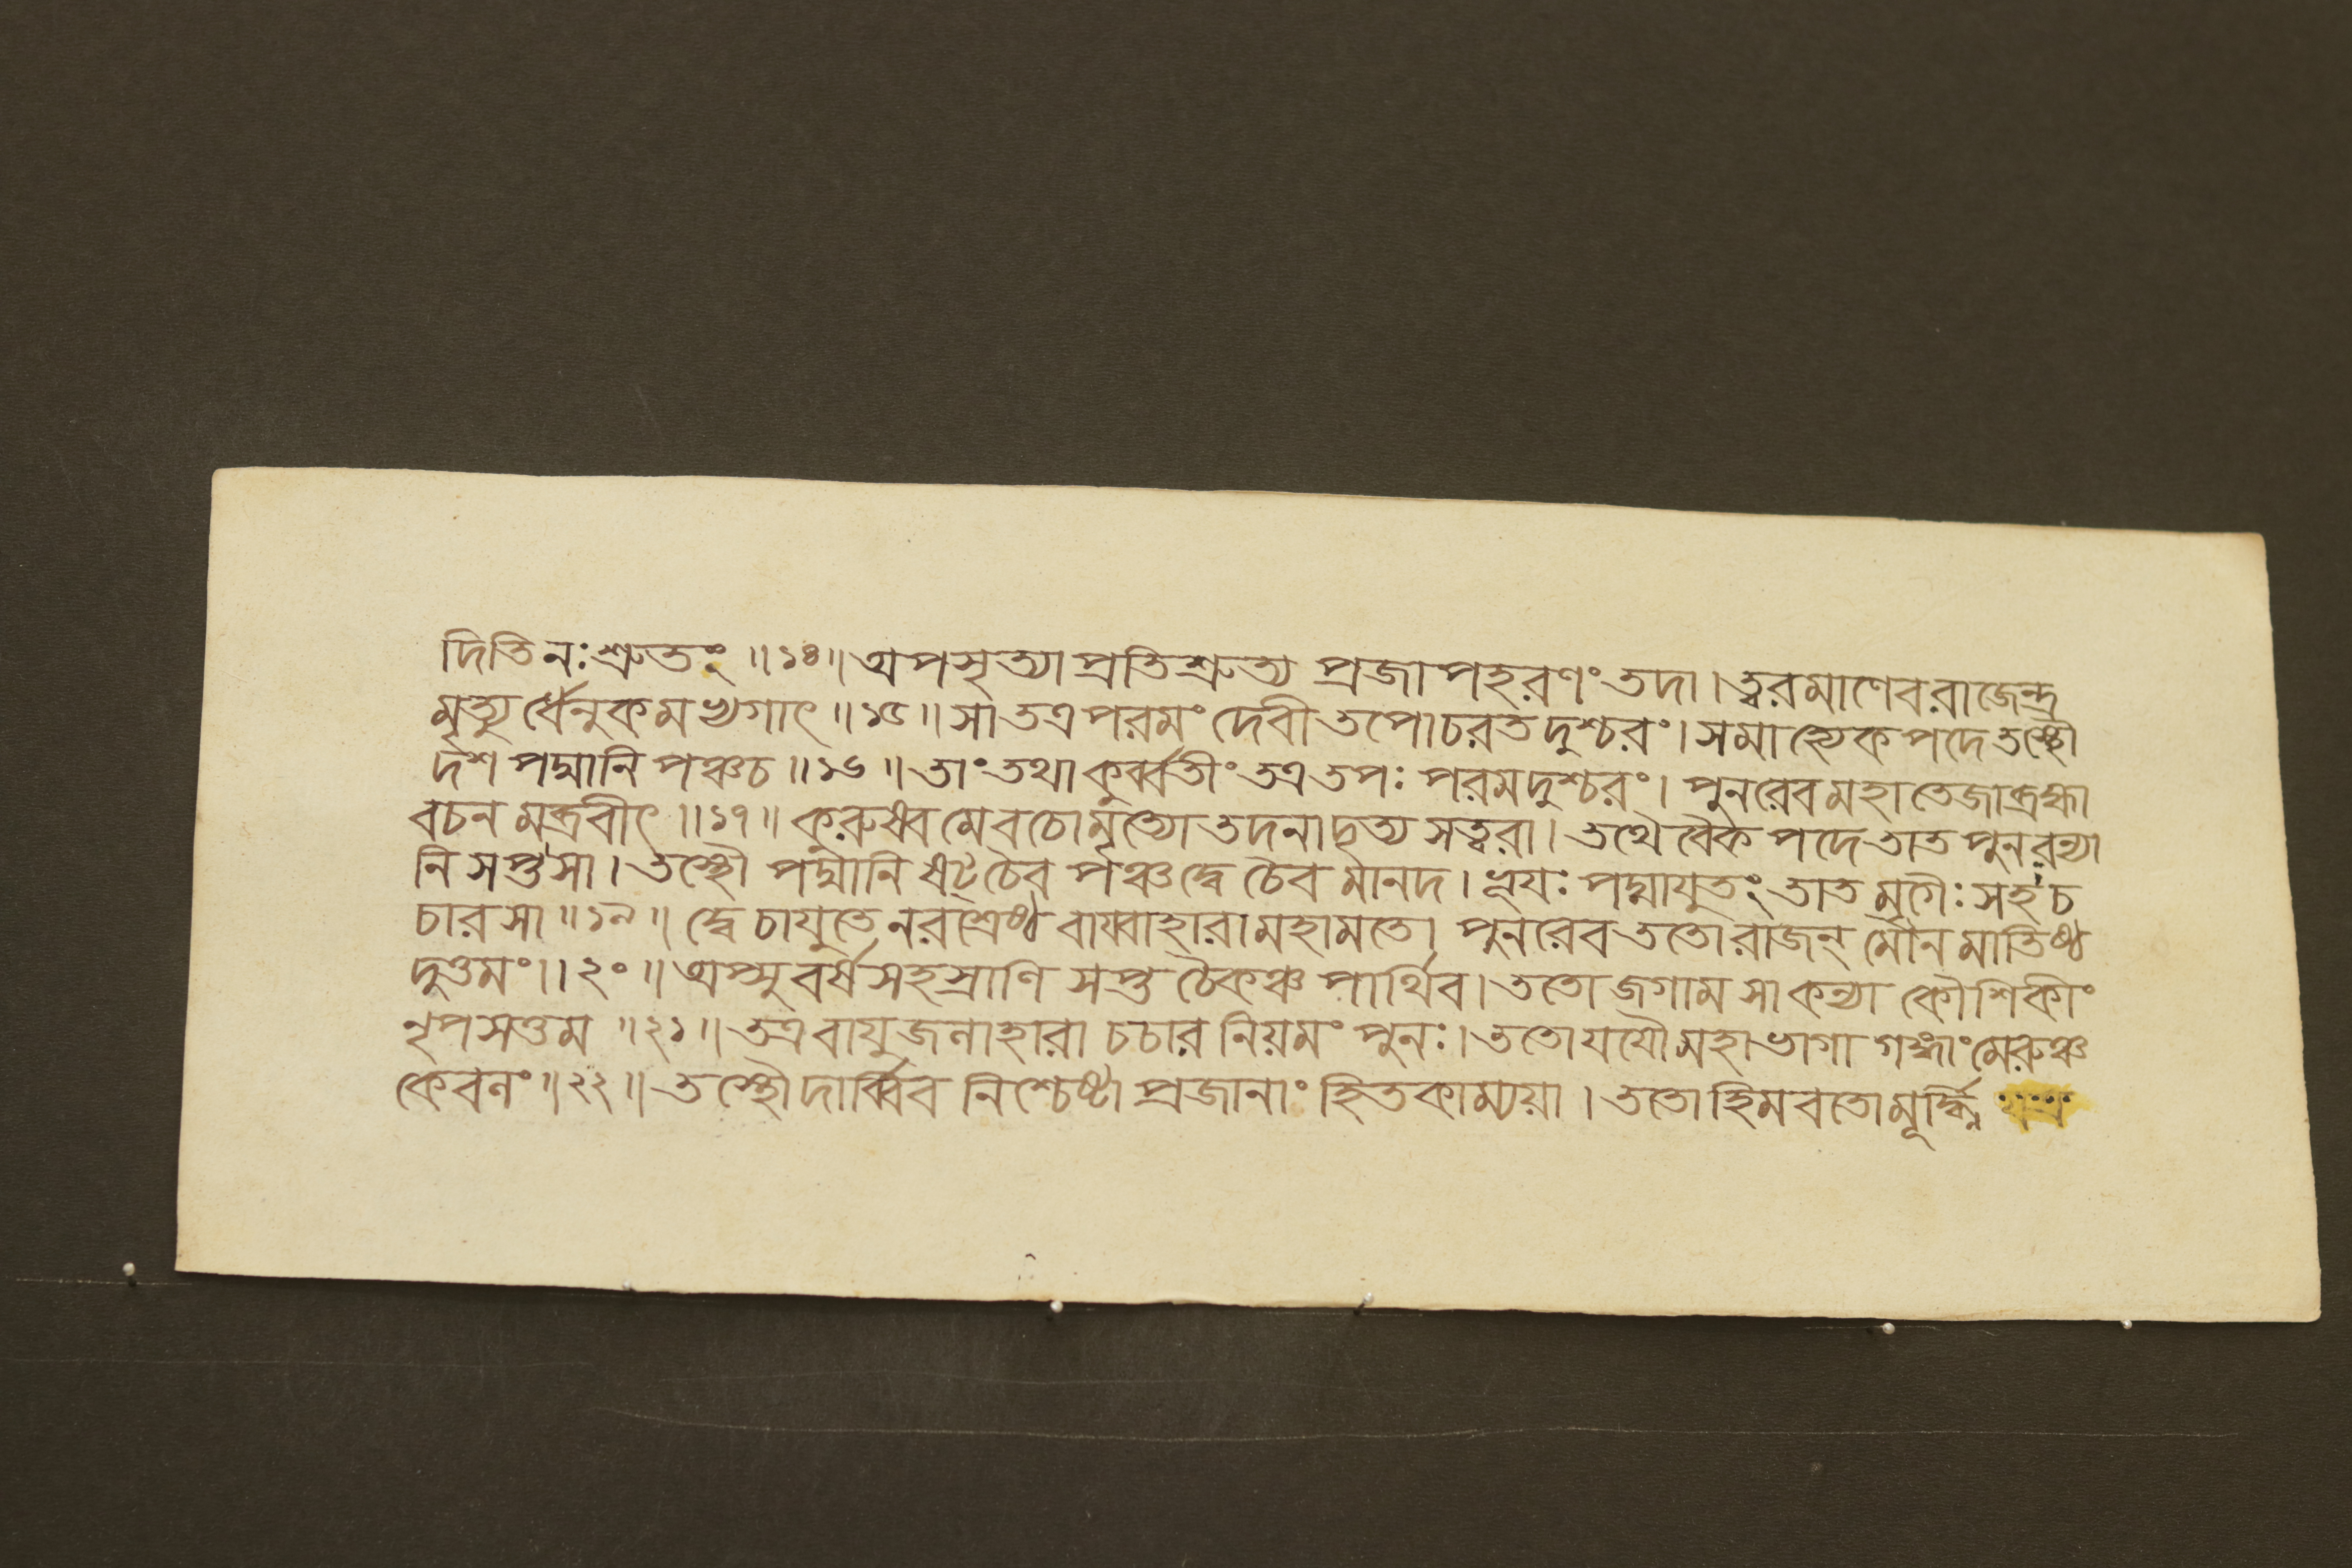 দিতি নঃ শ্রুতং ॥১৪॥ অপসৃত্যাপ্রতিশ্রুত্য প্রজাপহরণং তদা। ত্বরমাণেব রাজেন্দ্র
মৃত্যুর্ধেনুকমভ্যগাৎ ॥১৫॥ সা তত্র পরমং দেবী তপোচরত দুশ্চরং। সমাহ্যেকপদে তস্থৌ
দশ পদ্মানি পঞ্চ চ ॥১৬॥ তাং তথা কুর্ব্বতীং তত্র তপঃ পরমদুশ্চরং। পুনরেব মহাতেজা ব্রহ্মা
বচনমব্রবীৎ ॥১৭॥ কুরুষ্ব মে বচো মৃত্যো তদনাদৃত্য সত্বরা। তথৈবৈকপদে তাত পুনরন্যা
নি সপ্ত সা। তস্থৌ পদ্মানি ষট্ চৈব পঞ্চ দ্বে চৈব মানদ। ভূয়ঃ পদ্মাযুতং তাত মৃগৈঃ সহ চ
চার সা ॥১৯॥ দ্বে চাযুতে নরশ্রেষ্ঠ বায়্বাহারা মহামতে। পুনরেব ততো রাজন্ মৌনমাতিষ্ঠ
দুত্তমং।।২০॥ অপ্সু বর্ষসহস্রাণি সপ্ত চৈকঞ্চ পার্থিব। ততো জগাম সা কন্যা কৌশিকীং
নৃপসত্তম ॥২১॥ তত্র বায়ুজলাহারা চচার নিয়মং পুনঃ। ততো যযৌ মহাভাগা গঙ্গাং মেরুঞ্চ
কেবলং ॥২২॥ তস্থৌ দার্ব্বিব নিশ্চেষ্টা প্রজানাং হিতকাম্যয়া। ততো হিমবতো মূর্দ্ধ্নি যত্র